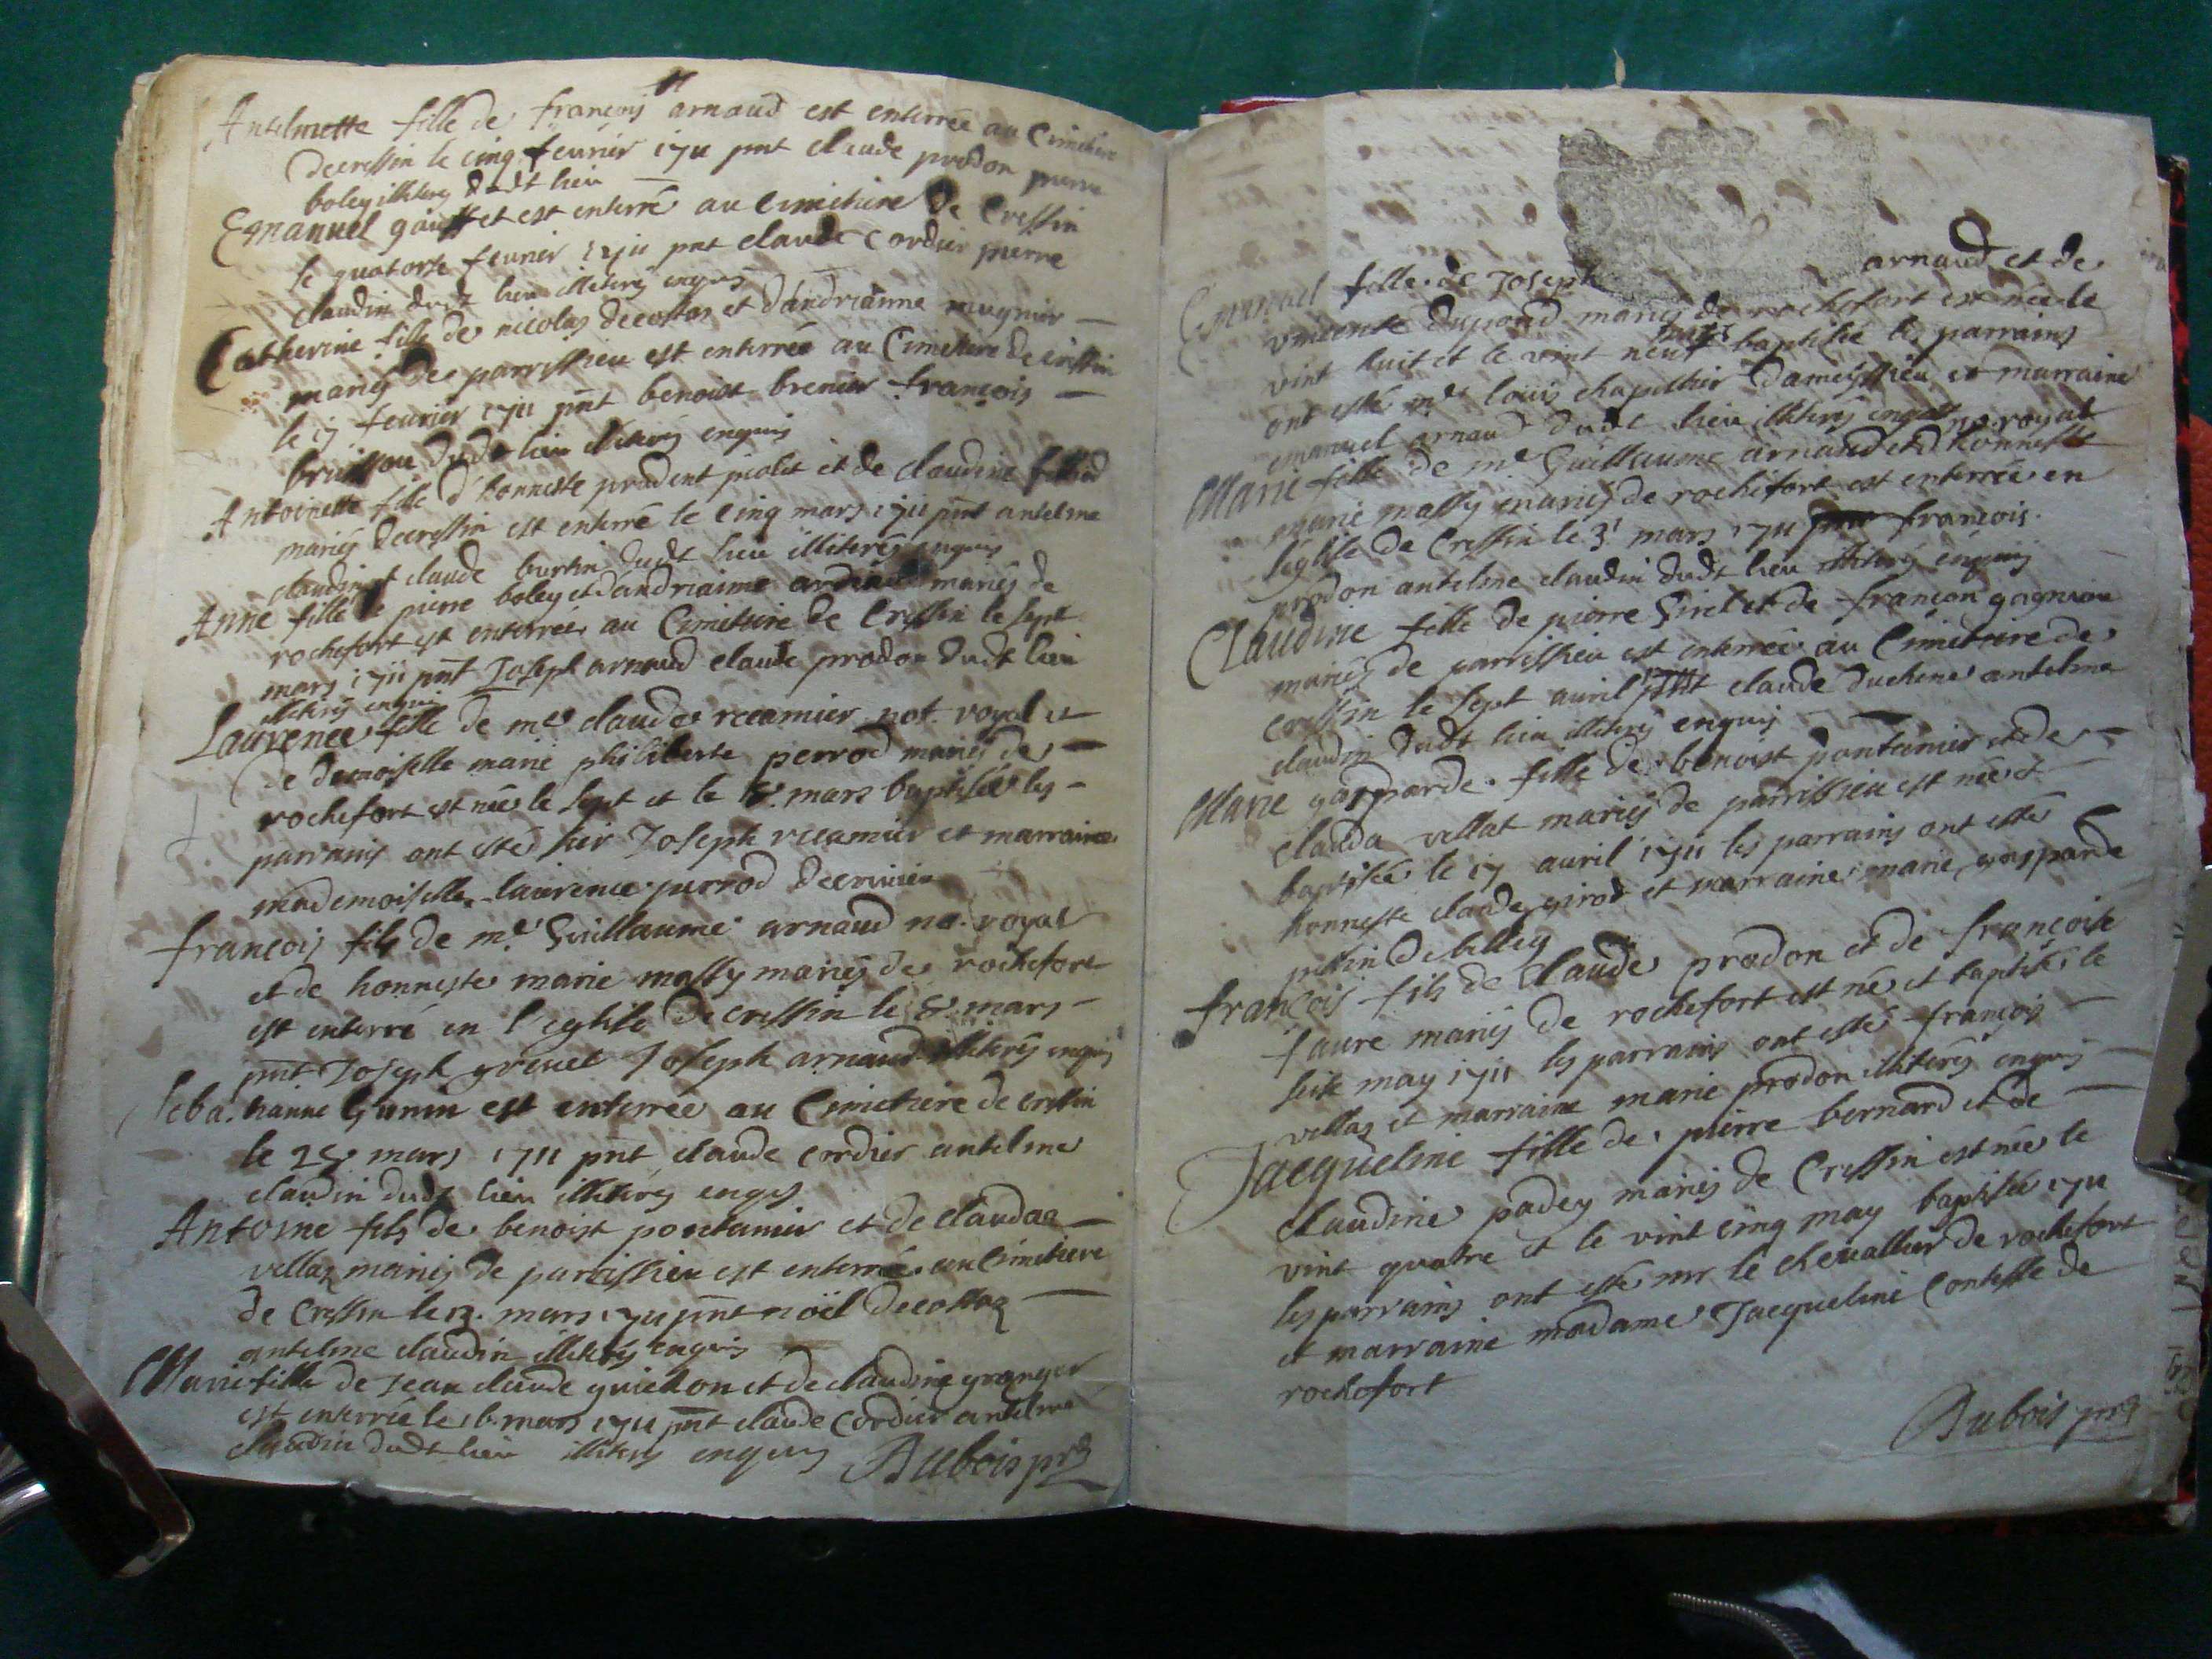 Antelmette fille de françois arnaud est enterrée au Cimetiere
decressin le cinq feurier 1711 pnt claude prodon pierre
boley illiteres dudt lieu
Emanuel est enterré au Cimetiere de Cressin
le quatorse feurier 1711 pnt claude Cordier pierre
claudin dudt lieu illiterés enquis
Catherine fille de nicolas decostas et d'andrianne mugnier
mariés de parrissieu est enterrée au Cimetiere de cressin
le 17 feurier 1711 pnt benoist brenier françois
dudt lieu illiterés enquis
Antoinette fille d'honneste prudent piolet et de claudine
mariés decressin est enterré le cinq mars 1711 pnt antelme
claudin et claude burtin dudt lieu illiterés enquis
Anne fille de pierre boley et d'andrianne mariés de
rochefort est enterrée au Cimetiere de Cressin le sept
mars 1711 pnt Joseph arnaud claude prodon dudt lieu
illiterés enquis
Laurence fille de me claude recamier not. royal et
de demoiselle marie philiberte perrod mariés de
rochefort est née le sept et le 8. mars baptisée les
parrains ont esté sier Joseph recamier et marraine
mademoiselle laurence perrod
françois fils de me Guillaume arnaud no. royal
et de honneste marie massy mariés de rochefort
est enterré en l'eglise de cressin le 8. mars
pnt Joseph grenet Joseph arnaud illiterés enquis
Sebastianne est enterrée au Cimetiere de cressin
le mars 1711 pnt claude Cordier antelme
claudin dudt lieu illiterés enquis
Antoine fils de benoist pontanier et de claudaz
vellaz mariés de parissieu est enterré au Cimetiere
de Cressin le 13. mars 1711 pnt noël decostaz
antelme claudin illiterés enquis
Marie fille de Jean claude guichon et de claudine granger
est enterrée le 16. mars 1711 pnt claude Cordier antelme
claudin dudt lieu illiterés enquis Dubois pre
Emanuel fille de Joseph arnaud et de
vincente dupond mariés de rochefort est née le
vint huit et le vint neuf mars baptisée les parrains
ont esté me louis chapellier dameyssieu et marraine
emanuel arnaud dudt lieu illiterés enquis
Marie fille de me Guillaume arnaud no. royal et d'honneste
marie massy mariés de rochefort est enterrée en
l'eglise de Cressin le 31 mars 1711 pnt françois
prodon antelme claudin dudt lieu illiterés enquis
Claudine fille de pierre et de françon gagnion
mariés de parrissieu est enterrée au Cimetiere de
cressin le sept auril claude duchene antelme
claudin dudt lieu illiterés enquis
Marie gasparde fille de benoist pontanier et de
clauda vellat mariés de parrissieu est née et
baptisée le 17 auril 1711 les parrains ont estés
honneste claude girod et marraine marie gasparde
de belley
françois fils de Claude prodon et de françoise
faure mariés de rochefort est né et baptisé le
seise may 1711 les parrains ont estés françois
vellaz et marraine marie prodon illiterés enquis
Jacqueline fille de pierre bernard et de
claudine padey mariés de Cressin est née le
vint quatre et le vint cinq may baptisée 1711
les parrains ont esté mr le cheuallier de rochefort
et marraine madame Jacqueline Contesse de
rochefort
Dubois pre